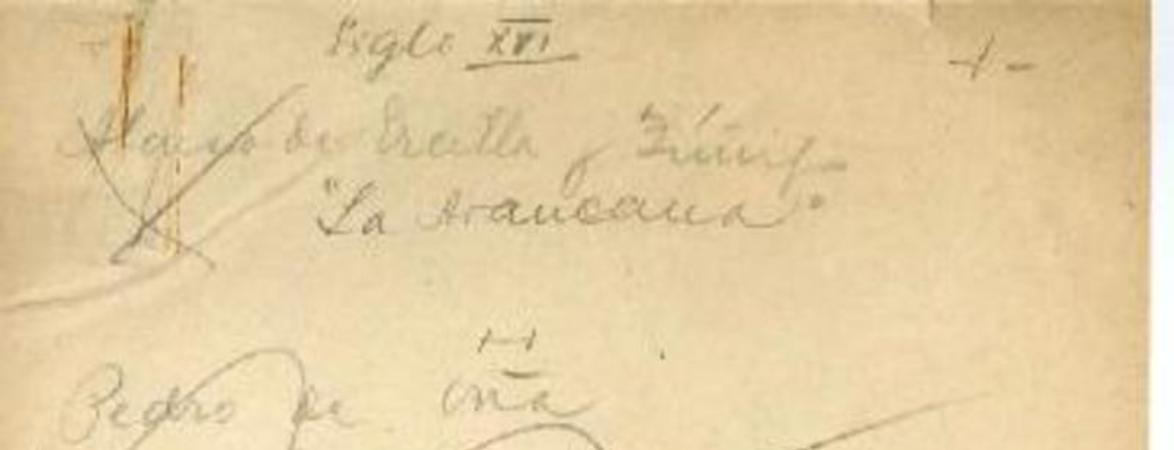 Siglo XVI
Alonso de Ercilla y Zúñiga
"La Araucana"
Pedro de Oña